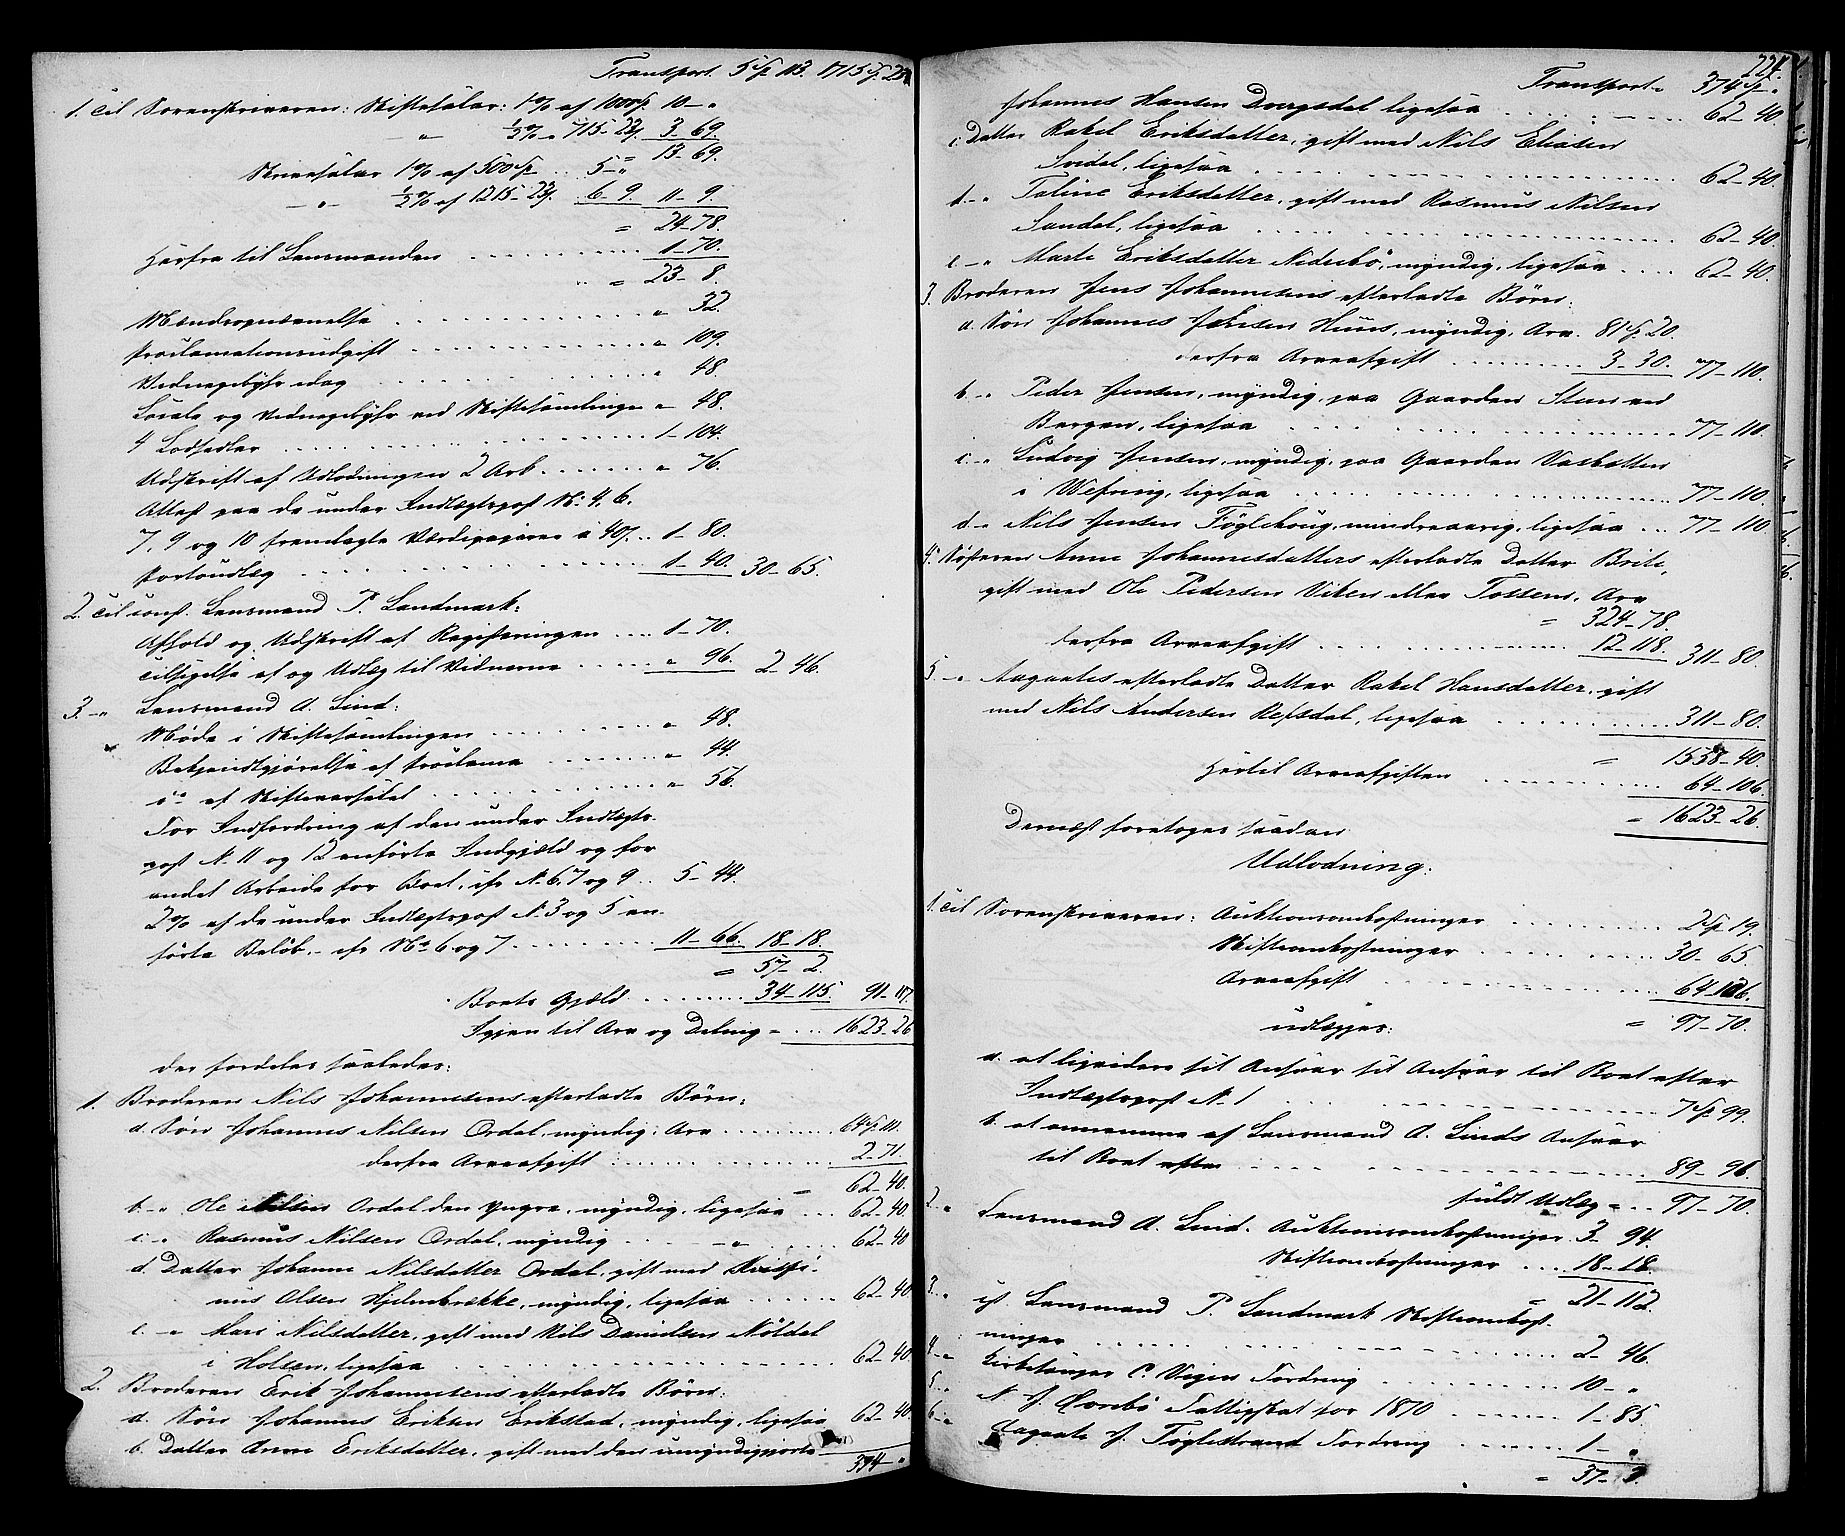 Transport. 5 Sp 113. 1715 Sp. 23
1. Til Sorenskriveren: Skiftesalær: 1% af 1000 Sp. 10 - "
- " ½% " 715 - 23 3. 69.
" 13 - 69.
Skrivesalær 1% af 500 Sp ... 5 - "
- " - ½% af 1215 - 23 6 - 9. 11 - 9.
= 24 - 78.
Herfra til Lensmanden . . . . 1 - 70.
" = 23 - 8.
Mændsopnævnelse . . . . " 32.
Proclamationsudgift . . . . " 109.
Vidnegebyhr idag . . . . " 48.
Locale og Vidnegebyhr ved Skiftesamlingen " 48.
4 Lodsedler . . . . 1 - 104.
Udskrift af Udlodningen 2 Ark . . . . " 76.
Attest paa de under Indtægtspost No. 4, 6.
7, 9 og 10 fremlagte Værdipapirer à 40 . . 1 - 80.
Portoudlæg . . . . 1 - 40. 30 - 65.
2. Til const. Lensmand P. Landmark:
Afhold og Udskrift af Registreringen . . . . 1 - 70.
Tilsigelse af og Udlæg til Vidnerne . . . . " 96. 2 - 46.
3. - " Lensmand A. Lind:
Møde i Skiftesamlingen . . . . " 48.
Bekjendtgjørelse af Proclama . . . . " 44.
do af Skiftevarselet . . . . " 56.
For Indfordring af den under Indtægts-
post No. 11 og 12 anførte Indgjæld og for
andet Arbeide for Boet, cfr No. 6, 7 og 9 . . 5 - 44.
2% af de under Indtægtspost No. 3 og 5 an-
førte Beløb, - cfr No. 6 og 7 . . . . 11 - 66. 18 - 18.
= 57 - 2.
Boets Gjæld . . . . 34 - 115. 91 - 117.
Igjen til Arv og Deling = . . . 1623 - 26
der fordeles saaledes:
1. Broderen Nils Johannesens efterladte Børn:
a. Søn Johannes Nilsen Ordal, myndig, Arv . . . . 64 Sp. 111.
derfra Arveafgift . . . . 2 - 71.
= 62 - 40.
b. - " Ole Nilsen Ordal den yngre, myndig, ligesaa . . . 62 - 40.
c. - " Rasmus Nilsen Ordal, myndig . . . - " - . . . 62 - 40
d. Datter Johanne Nilsdatter Ordal, gift med
nus Olsen Hjelmbrække, myndig, ligesaa . . . . 62 - 40
e. - " Mari Nilsdatter, gift med Nils Danielsen Nöldal
i Holsen, ligesaa . . . . 62 - 40
2. Broderen Erik Johannesens efterladte Børn:
a. Søn Johannes Eriksen Erikstad, myndig, ligesaa 62 - 40
b. Datter Anne Eriksdatter, gift med den umyndiggjorte
374 - "
224.
Transport " 374 Sp "
Johannes Hansen Dvergsdal ligesaa . . . . 62 - 40.
c. Datter Rakel Eriksdatter, gift med Nils Eliasen
Svidal, ligesaa . . . . 62 - 40.
d. - " Taline Eriksdatter, gift med Rasmus Nilsen
Sandal, ligesaa . . . . 62 - 40.
e. - " Marte Eriksdatter Nidrebö, myndig, ligesaa . . . . 62 - 40.
3. Broderen Jens Johannesens efterladte Børn:
a. Søn Johannes Jensen Huus, myndig, Arv. 81 Sp. 20.
derfra Arveafgift . . . . 3 - 30. 77 - 110.
b. - " Peder Jensen, myndig, paa Gaarden Steen ved
Bergen, ligesaa . . . . 77 - 110.
c. - " Ludvig Jensen, myndig, paa Gaarden
i Wefring, ligesaa . . . . 77 - 110.
d. - " Nils Jensen Föglehoug, mindreaarig, ligesaa . . . 77 - 110.
4. Søsteren Anne Johannesdatters efterladte Datter Brite,
gift med Ole Pedersen Viken eller Tossen, Arv
= 324 - 78.
derfra Arveafgift . . . . 12 - 118. 311 - 80.
5. - " Aagaates efterladte Datter Rakel Hansdatter, gift
med Nils Andersen Refsdal, ligesaa . . . . 311 - 80.
= 1558 - 40.
Hertil Arveafgiften . . . . 64 - 106.
= 1623 - 26.
Dernæst foretoges saadan
Udlodning:
1. Til Sorenskriveren: Auktionsomkostninger . . . . 2 Sp 19.
Skifteomkostninger . . . . 30 - 65.
Arveafgift . . . . 64 - 106.
= 97 - 70.
udlægges:
a. at liqvidere sit Ansvar til Boet efter
Indtægtspost No. 1 . . . . 7 Sp 99.
b. at annamme af Lensmand A. Linds Ansvar
til Boet efter . . . . 89 - 96.
fuldt Udlæg = . . 97 - 70.
2. - " Lensmand A. Lind. Auktionsomkostninger 3 - 94.
Skifteomkostninger . . . 18 - 18.
= 21 - 112.
3. - " cst. Lensmand P. Landmark Skifteomkost-
ninger . . . . 2 - 46.
4. - " Kirkesanger C. Vigen Fordring . . . . 10 - "
5. - " N. J. Øvrebö Fattigskat for 1870 . . . . 1 - 85.
6. - " Aagaate J. Föglestrand Fordring . . . . 1 - "
= 37 - 3.